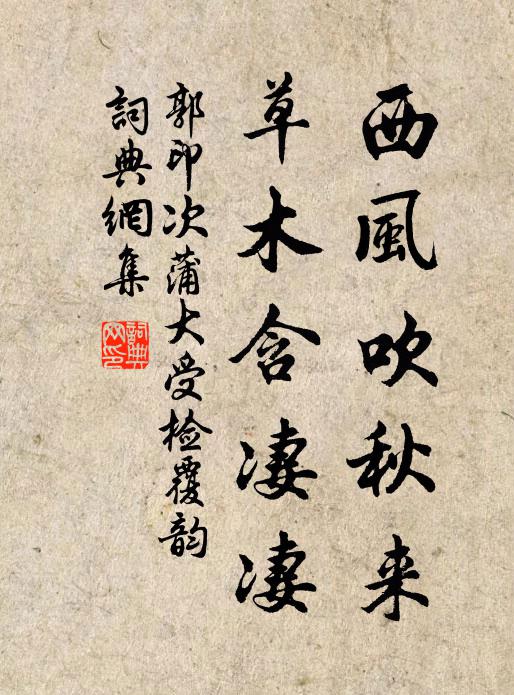 西風吹秋来
草木含凄凄
郭印次蒲大受检覆韵
詞典網集
詞典網印